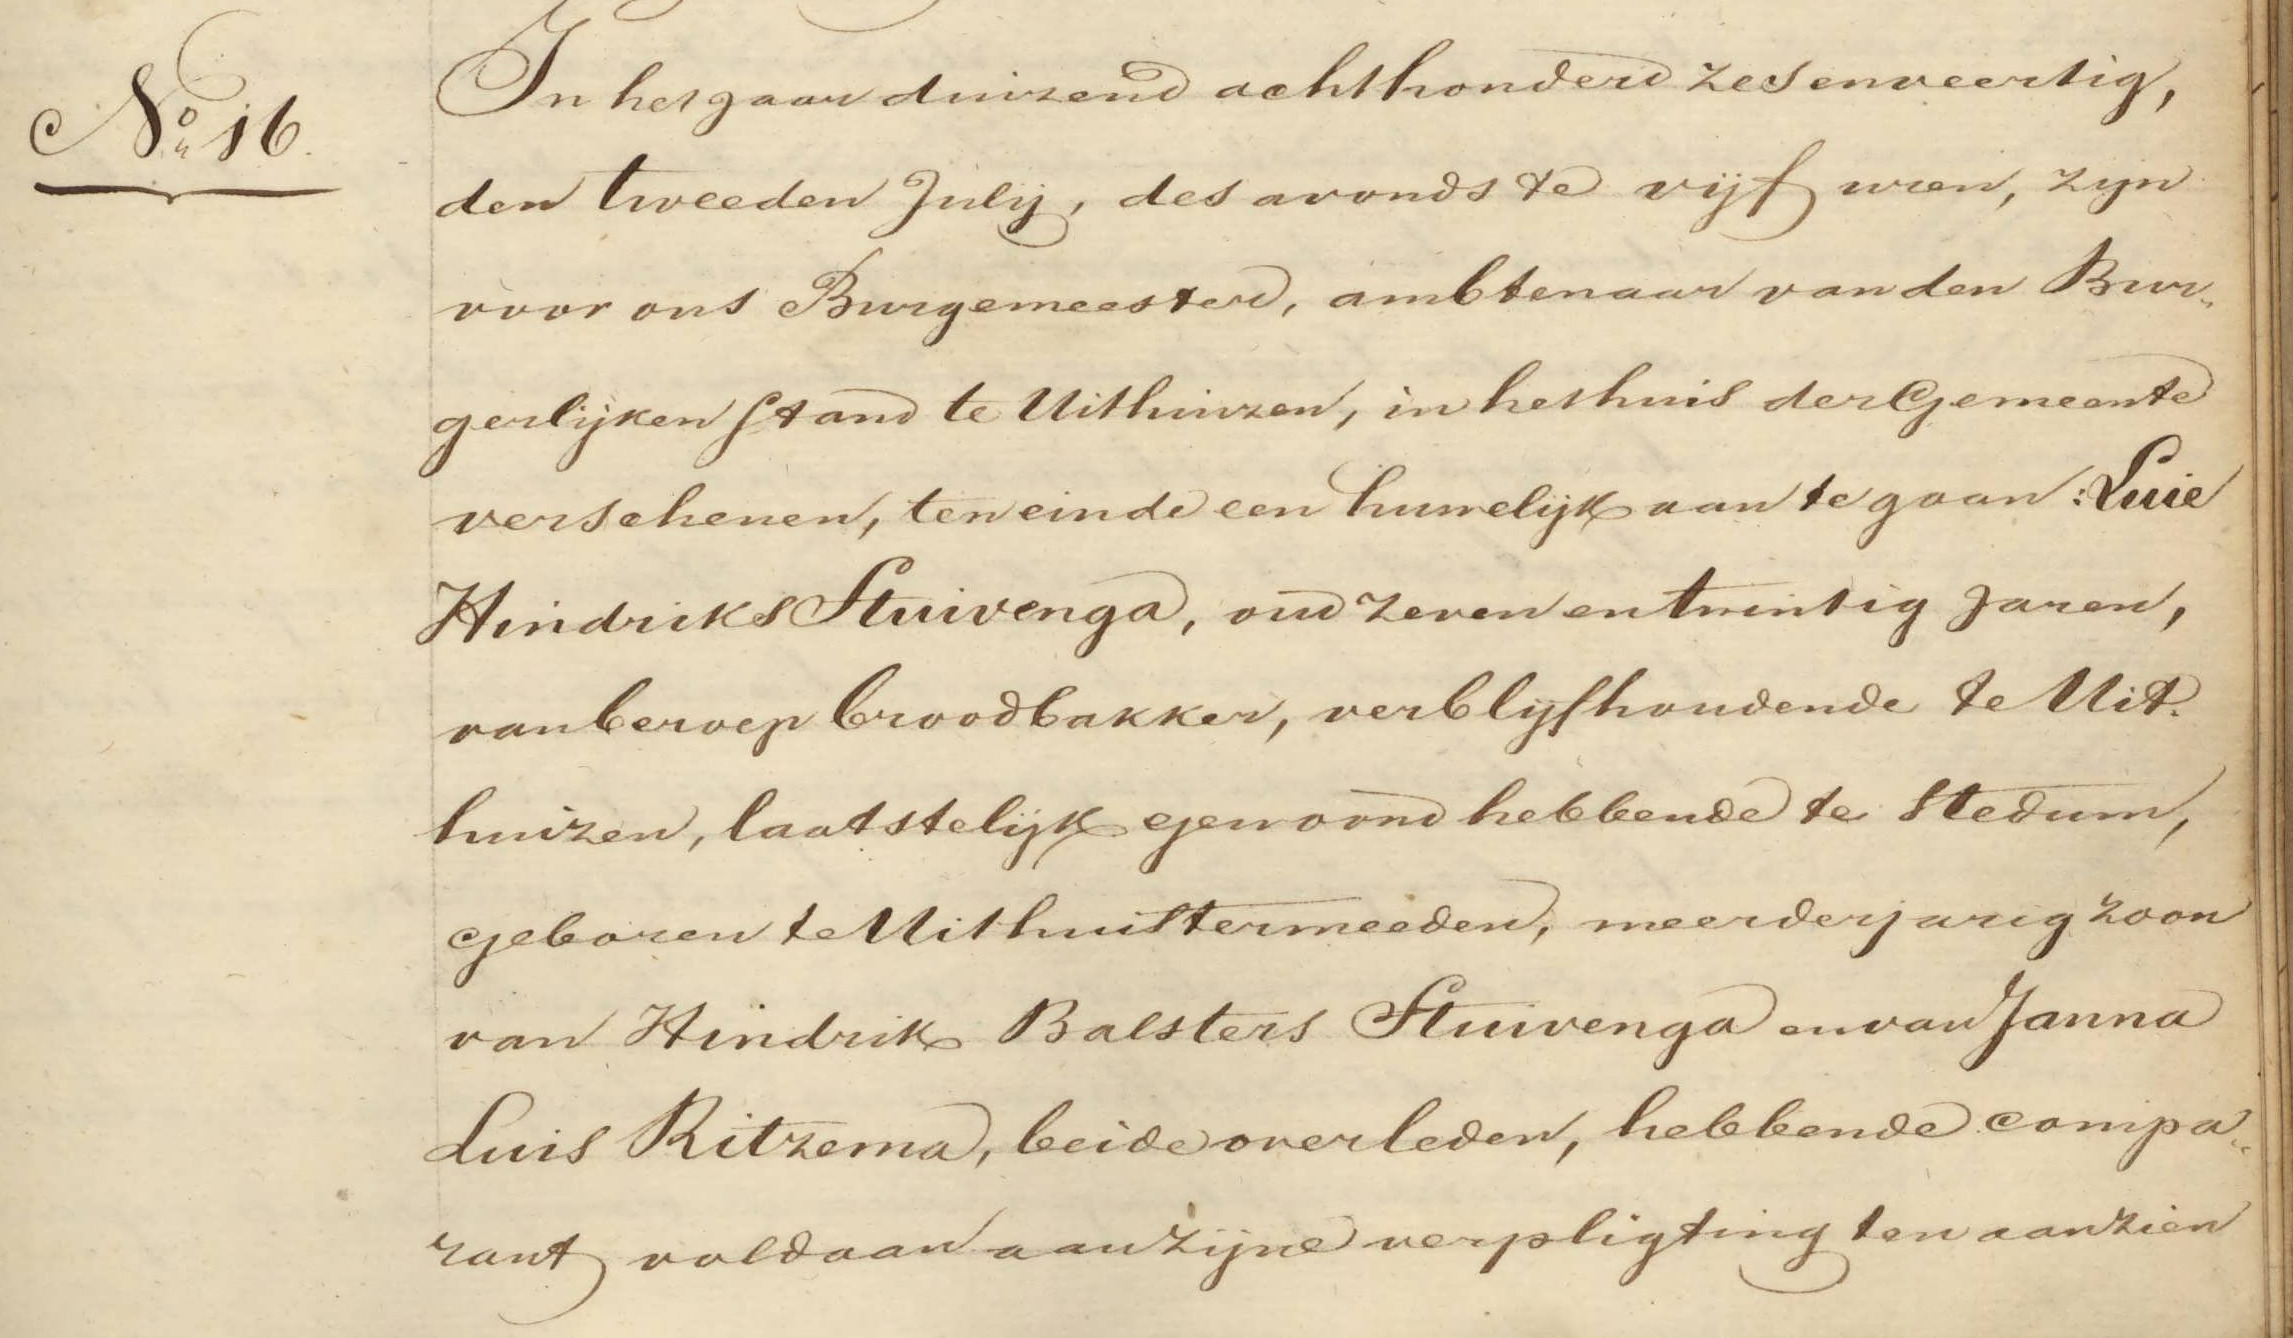 No 16.
In het jaar duizend achthonderd zes en veertig,
den tweeden Julij, des avonds te vijf uren, zijn
voor ons Burgemeester, ambtenaar van den Bur„
gerlijken Stand te Uithuizen, in het huis der Gemeente
verschenen, ten einde een huwelijk aan te gaan: Luie
Hindriks Stuivenga, oud zeven en twintig jaren,
van beroep broodbakker, verblijfhoudende te Uit„
huizen, laatstelijk gewoond hebbende te Stedum,
geboren te Uithuistermeeden, meerderjarig zoon
van Hindrik Balsters Stuivenga en van Janna
Luis Ritzema, beide overleden, hebbende compa„
rant voldaan aan zijne verpligting ten aanzien